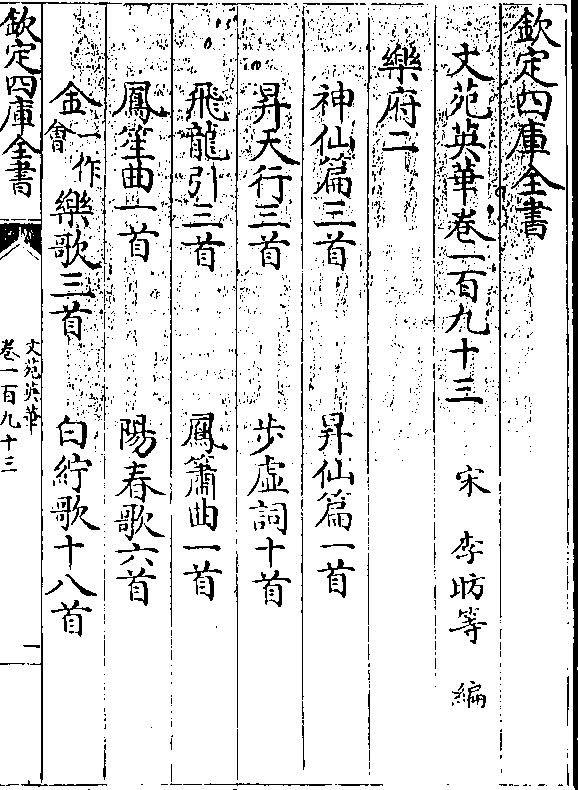 欽定四庫全書
文苑英華卷一百九十三 宋 李昉等 編
樂府二
神仙篇三首 昇仙篇一首
昇天行三首 步虛詞十首
飛龍引三首 鳳簫曲一首
鳳笙曲一首 陽春歌六首
金一作會樂歌三首 白紵歌十八首
欽定四庫全書
文苑英華
卷一百九十三
一